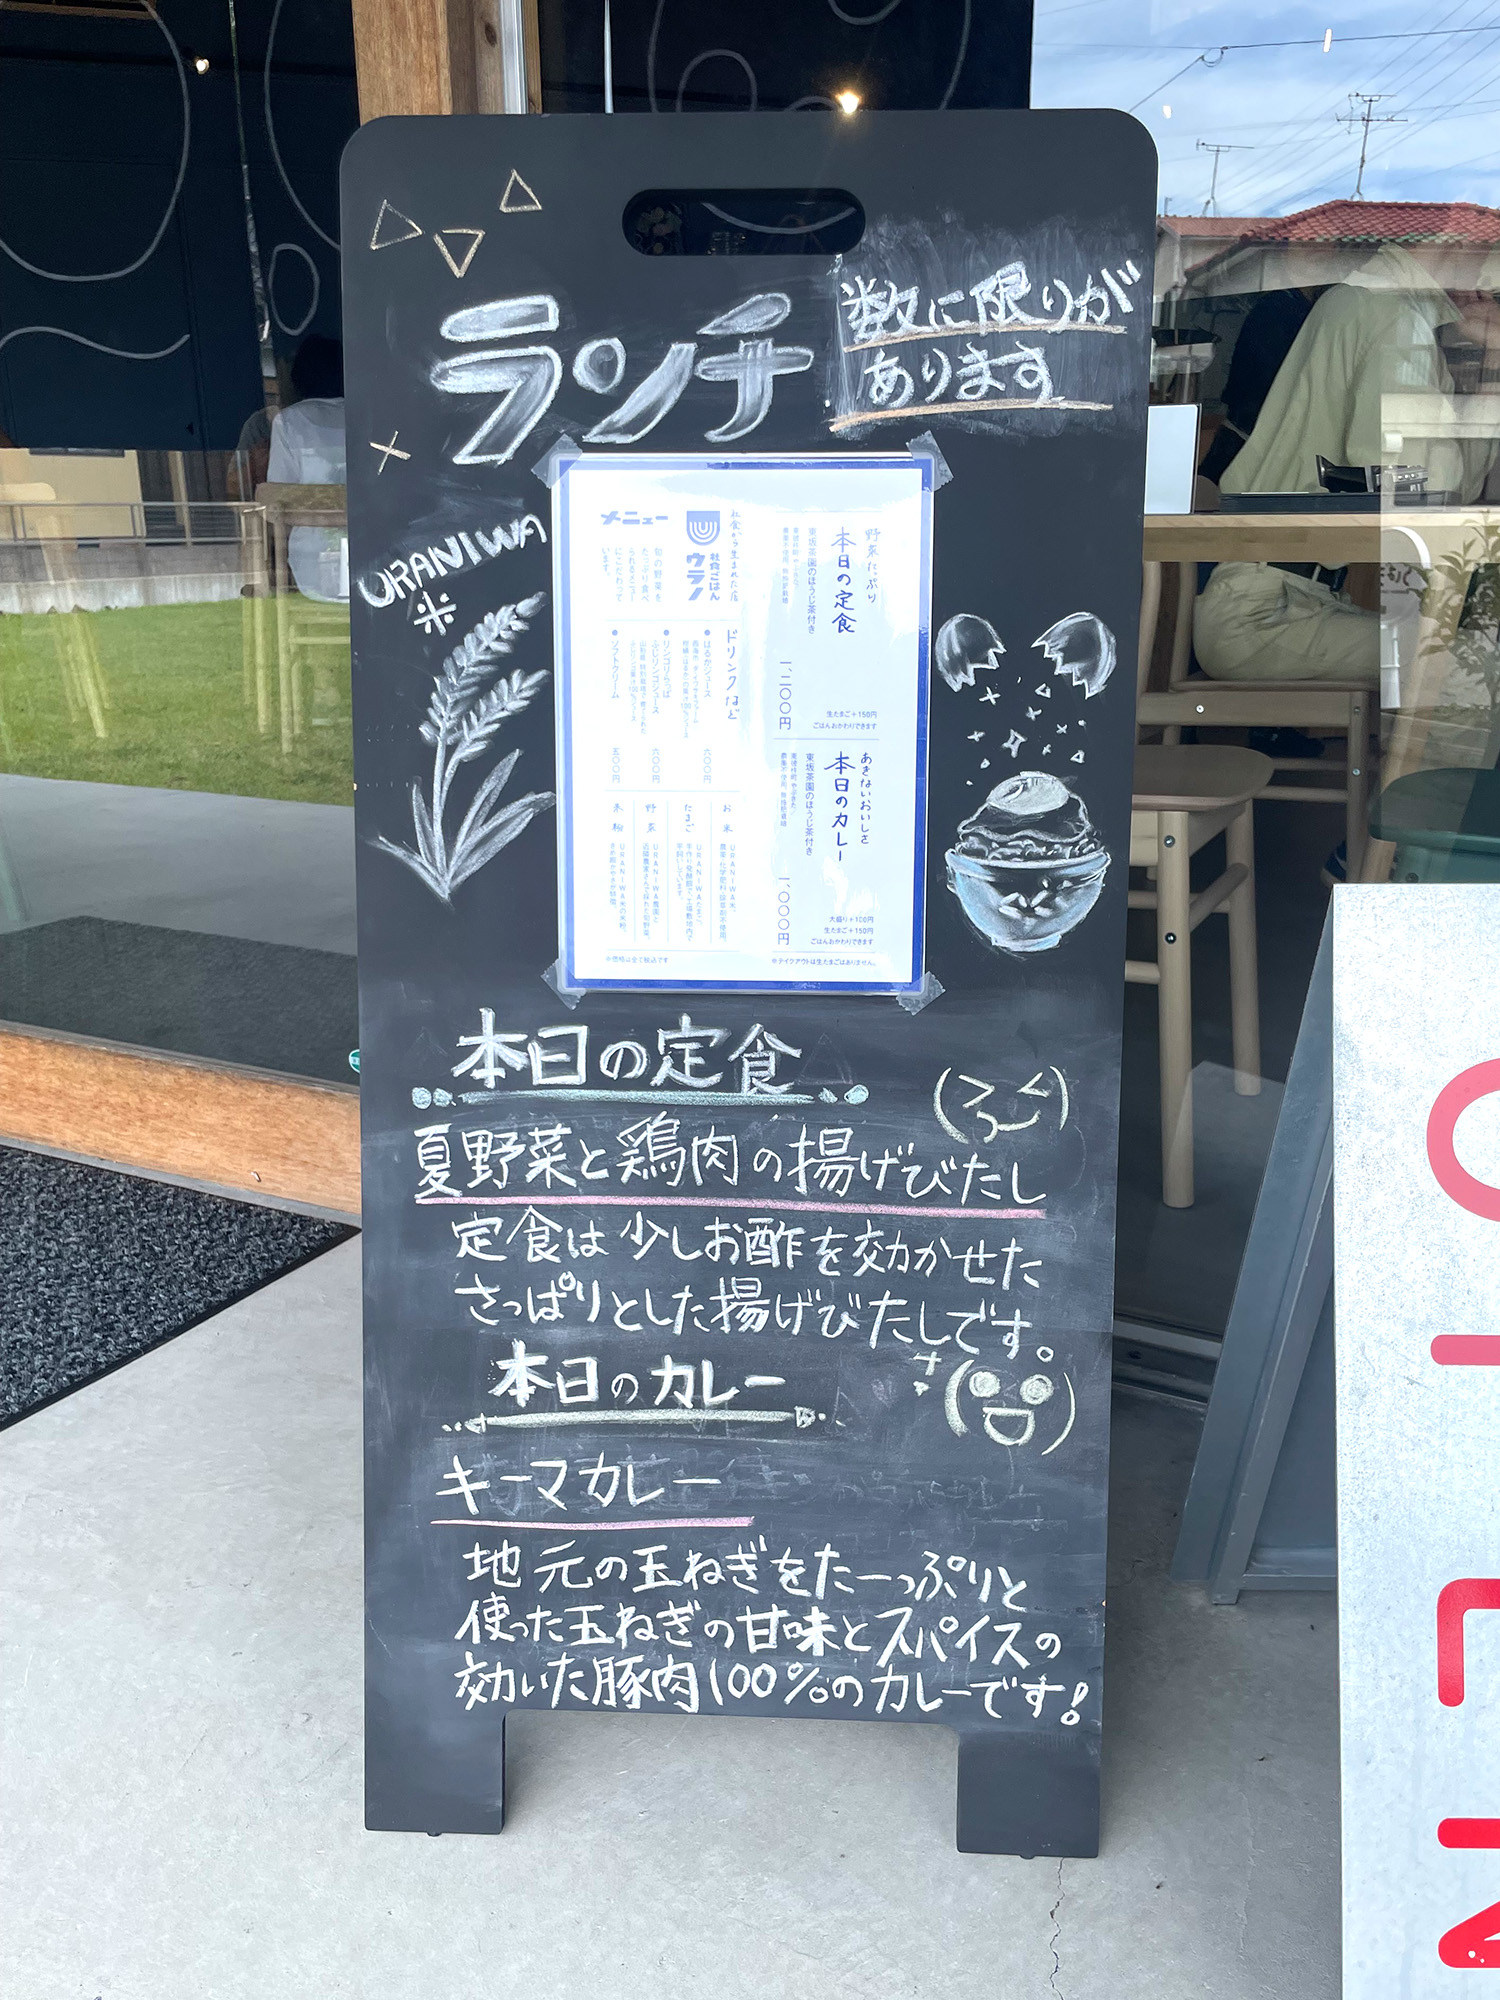 ランチ
数に限りが
あります
URANIWA
米
野菜たっぷり
本日の定食
東坂茶園のほうじ茶付き
一、二〇〇円
生たまご+150円
ごはんおかわりできます
あきないおいしさ
本日のカレー
東坂茶園のほうじ茶付き
一、〇〇〇円
大盛り+100円
生たまご+150円
ごはんおかわりできます
※テイクアウトは生たまごはありません。
社食から生まれた店
社食ごはん
ウラノ
メニュー
旬の野菜を
たっぷり食べ
られるメニュー
にこだわって
います。
ドリンクなど
はるかジュース
六〇〇円
リンゴりらっぱ
ふじリンゴジュース
六〇〇円
ソフトクリーム
五〇〇円
お米
URANIWA米。
たまご
URANIWAたまご。
野菜
URANIWA農園と
米粉
URANIWA米の米粉。
※価格は全て税込です
本日の定食
夏野菜と鶏肉の揚げびたし
定食は少しお酢を効かせた
さっぱりとした揚げびたしです。
本日のカレー
キーマカレー
地元の玉ねぎをたーっぷりと
使った玉ねぎの甘味とスパイスの
効いた豚肉100%のカレーです!
OPEN